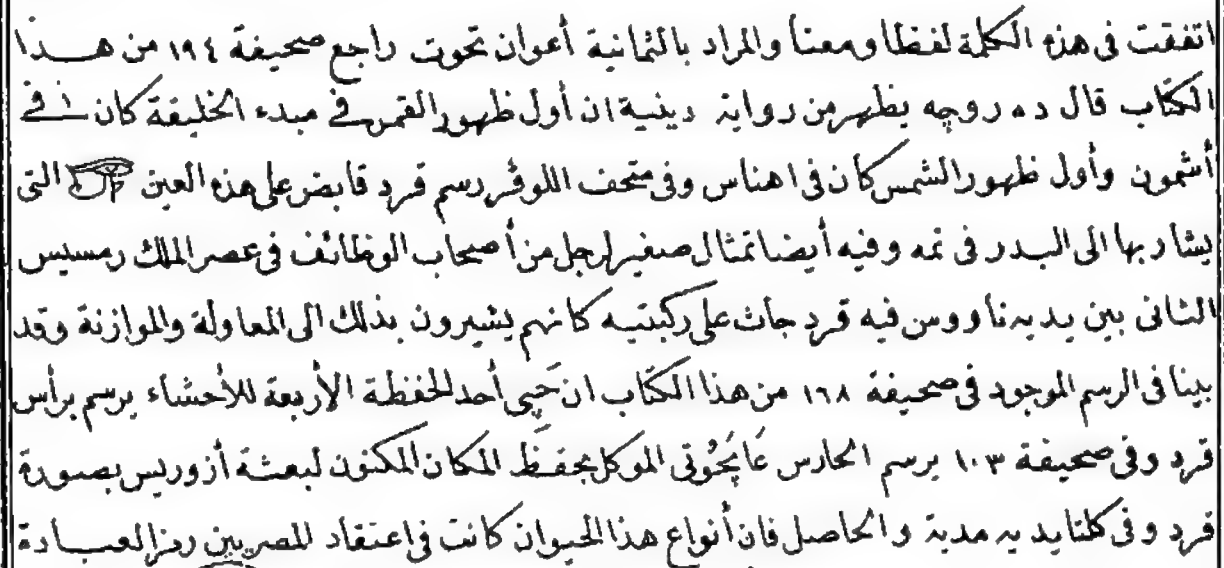 اتفقت فى هذه الكلمة لفظا ومعنأ والمراد بالثمانية أعوان تحوت راجع صحيفة ١٩٤ من هــذا
الكتاب قال ده روچه يظهر من رواية دينية ان أول ظهور القمر فى مبدء الخليقة كان فى
أشمون وأول ظهور الشمس كان فى اهناس وفى متحف اللوڤر رسم قرد قابض على هذه العين 𓂀 التى
يشار بها الى البدر فى تمه وفيه أيضا تمثال صغير لرجل من أصحاب الوظائف فى عصر الملك رمسيس
الثانى بين يديه ناووس فيه قرد جاث على ركبتيه كانهم يشيرون بذلك الى المعاولة والموازنة وقد
بينا فى الرسم الموجود فى صحيفة ١٦٨ من هذا الكتاب ان حَپى أحد الحفظة الأربعة للأحشاء يرسم برأس
قرد وفى صحيفة ١٠٣ يرسم الحارس الموكل بحفظ المكان المكنون لبعثة أزوريس بصورة
قرد وفى كلتا يديه مدية والحاصل فان أنواع هذا الحيوان كانت فى اعتقاد المصريين رمز العبــادة